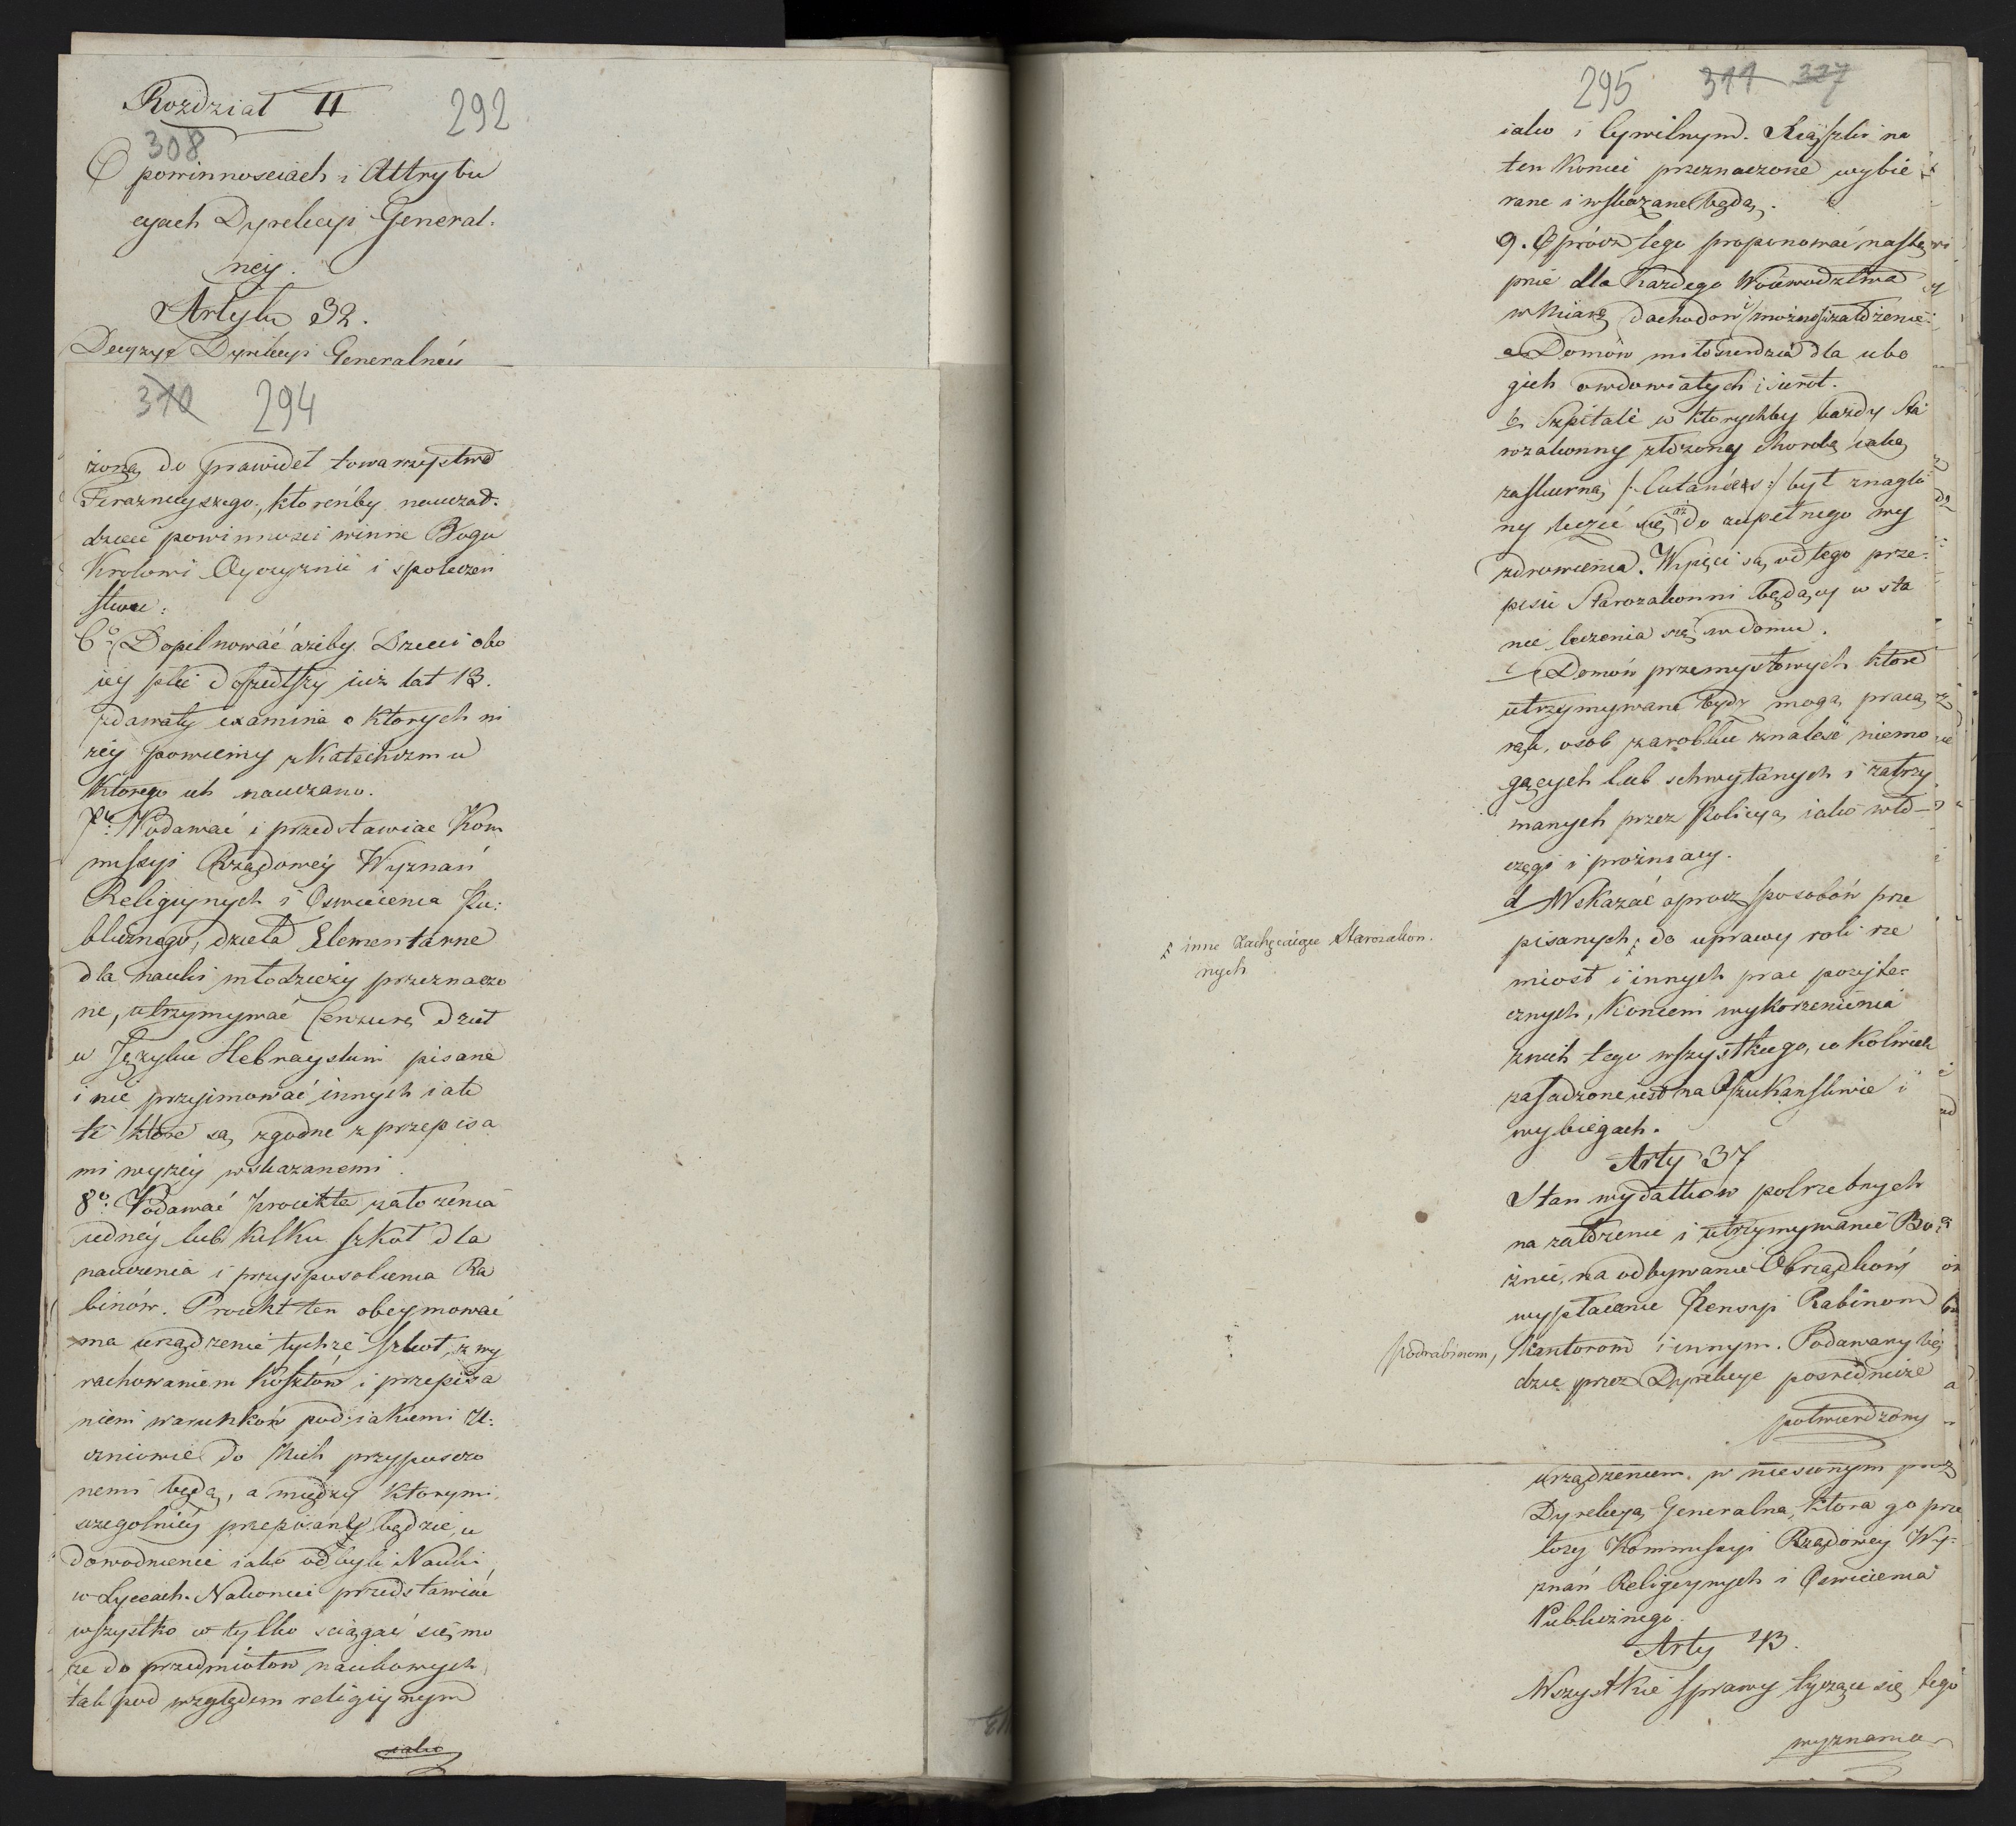 Rozdział II
292
308
O powinnosciach i Attrybu
cyach Dyrekcyi General-
néy.
Artykuł 32.
Decyzye Dyrekcyi Generalnéy
310 294
żoną do prawideł towarzystwa
Teraznieyszego, ktorenby nauczał
dzieci powinnosci winne Bogu
Krolowi Oyczyznie i społeczeń
stwu:
6º Dopilnować ażeby Dzieci obo
iéy płci doszedłszy iuż lat 13.
zdawały examina o ktorych ni
żéy powiemy z Katechizmu
Którego ich nauczano.
7º: Podawać i przedstawiac Kom
missyi Rządowéy Wyznań
Religiynych i Oswiecenia Pu:
blicznego, dzieła Elementarne
dla nauki młodzieży przeznaczo
ne, utrzymywać Cenzurę dzieł
w Języku Hebrayskim pisane
i nie przyimować innych iak
te które są zgodne z przepisa
mi wyżéy wskazanemi.
8º: Podawać Proiekta założenia
iednéy lub kilku szkół dla
nauczenia i przysposobienia Ra
binów. Proiekt ten obeymować
ma urządzenie tychże szkół, z wy
rachowaniem Kosztów i przepisa
niem warunków pod iakiemi U:
czniowie do Nich przypuszczo
nemi będą, a między ktorymi
szczegolniéy przepisany będzie, u
dowodnienie iako odbyli Nauki
w Lyceach. Nakoniec przedstawiać
wszystko co tylko sciągać się mo
że do przedmiotow naukowych
tak pod względem religiynym
iako
295 311 327
iako i Cywilnym. Książki na
ten koniec przeznaczone wybie
rane i wskazane będą.
9. Oprócz tego proponować nastę
pnie dla Każdego Woiewodztwa
w miarę dochodow i możności założenie:
a Domów miłosierdzia dla ubo
gich owdowiałych i sierot.
b. Szpitali w ktorychby każdy Sta
rozakonny złożony chorobą iaką
zaskurną /: Cutanées :/ był znaglo
ny leczyć się aż do zupełnego wy
zdrowienia. Wyięci są od tego prze-
pisu Starozakonni będący w sta
nie leczenia się w domu.
c Domów przemysłowych ktore
utrzymywane bydź mogą, pracą
rąk, osob zarobku znaleść niemo
gących lub schwytanych i zatrzy
manych przez Policyą iako włó-
częgi i prożniacy.
d Wskazać oprocz sposobów prze
pisanych, do uprawy roli rze
miosł i innych prac pożyte-
cznych, Koncem wykorzenienia
z nich tego wszystkiego, co kolwiek
zasadzone iest na Oszukanstwie i
wybiegach.
inne Zachęcaiące Starozakon.
nych
Arty 37
Stan wydatkow potrzebnych
na założenie i utrzymywanie Bo
żnic, na odbywanie Obrządków
wypłacenie Pensyi Rabinom
Podrabinom, Kantorom i innym. Podawany bę
dzie przez Dyrekcye posrednicze
potwierdzony
urządzeniem, w niesionym przez
Dyrekcyą Generalną, ktora go prze
łoży Kommissyi Rządowéy Wy-
znań Religiynych i Oswiecenia
Publicznego.
Arty 43.
Wszystkie sprawy tyczące się tego
wyznania